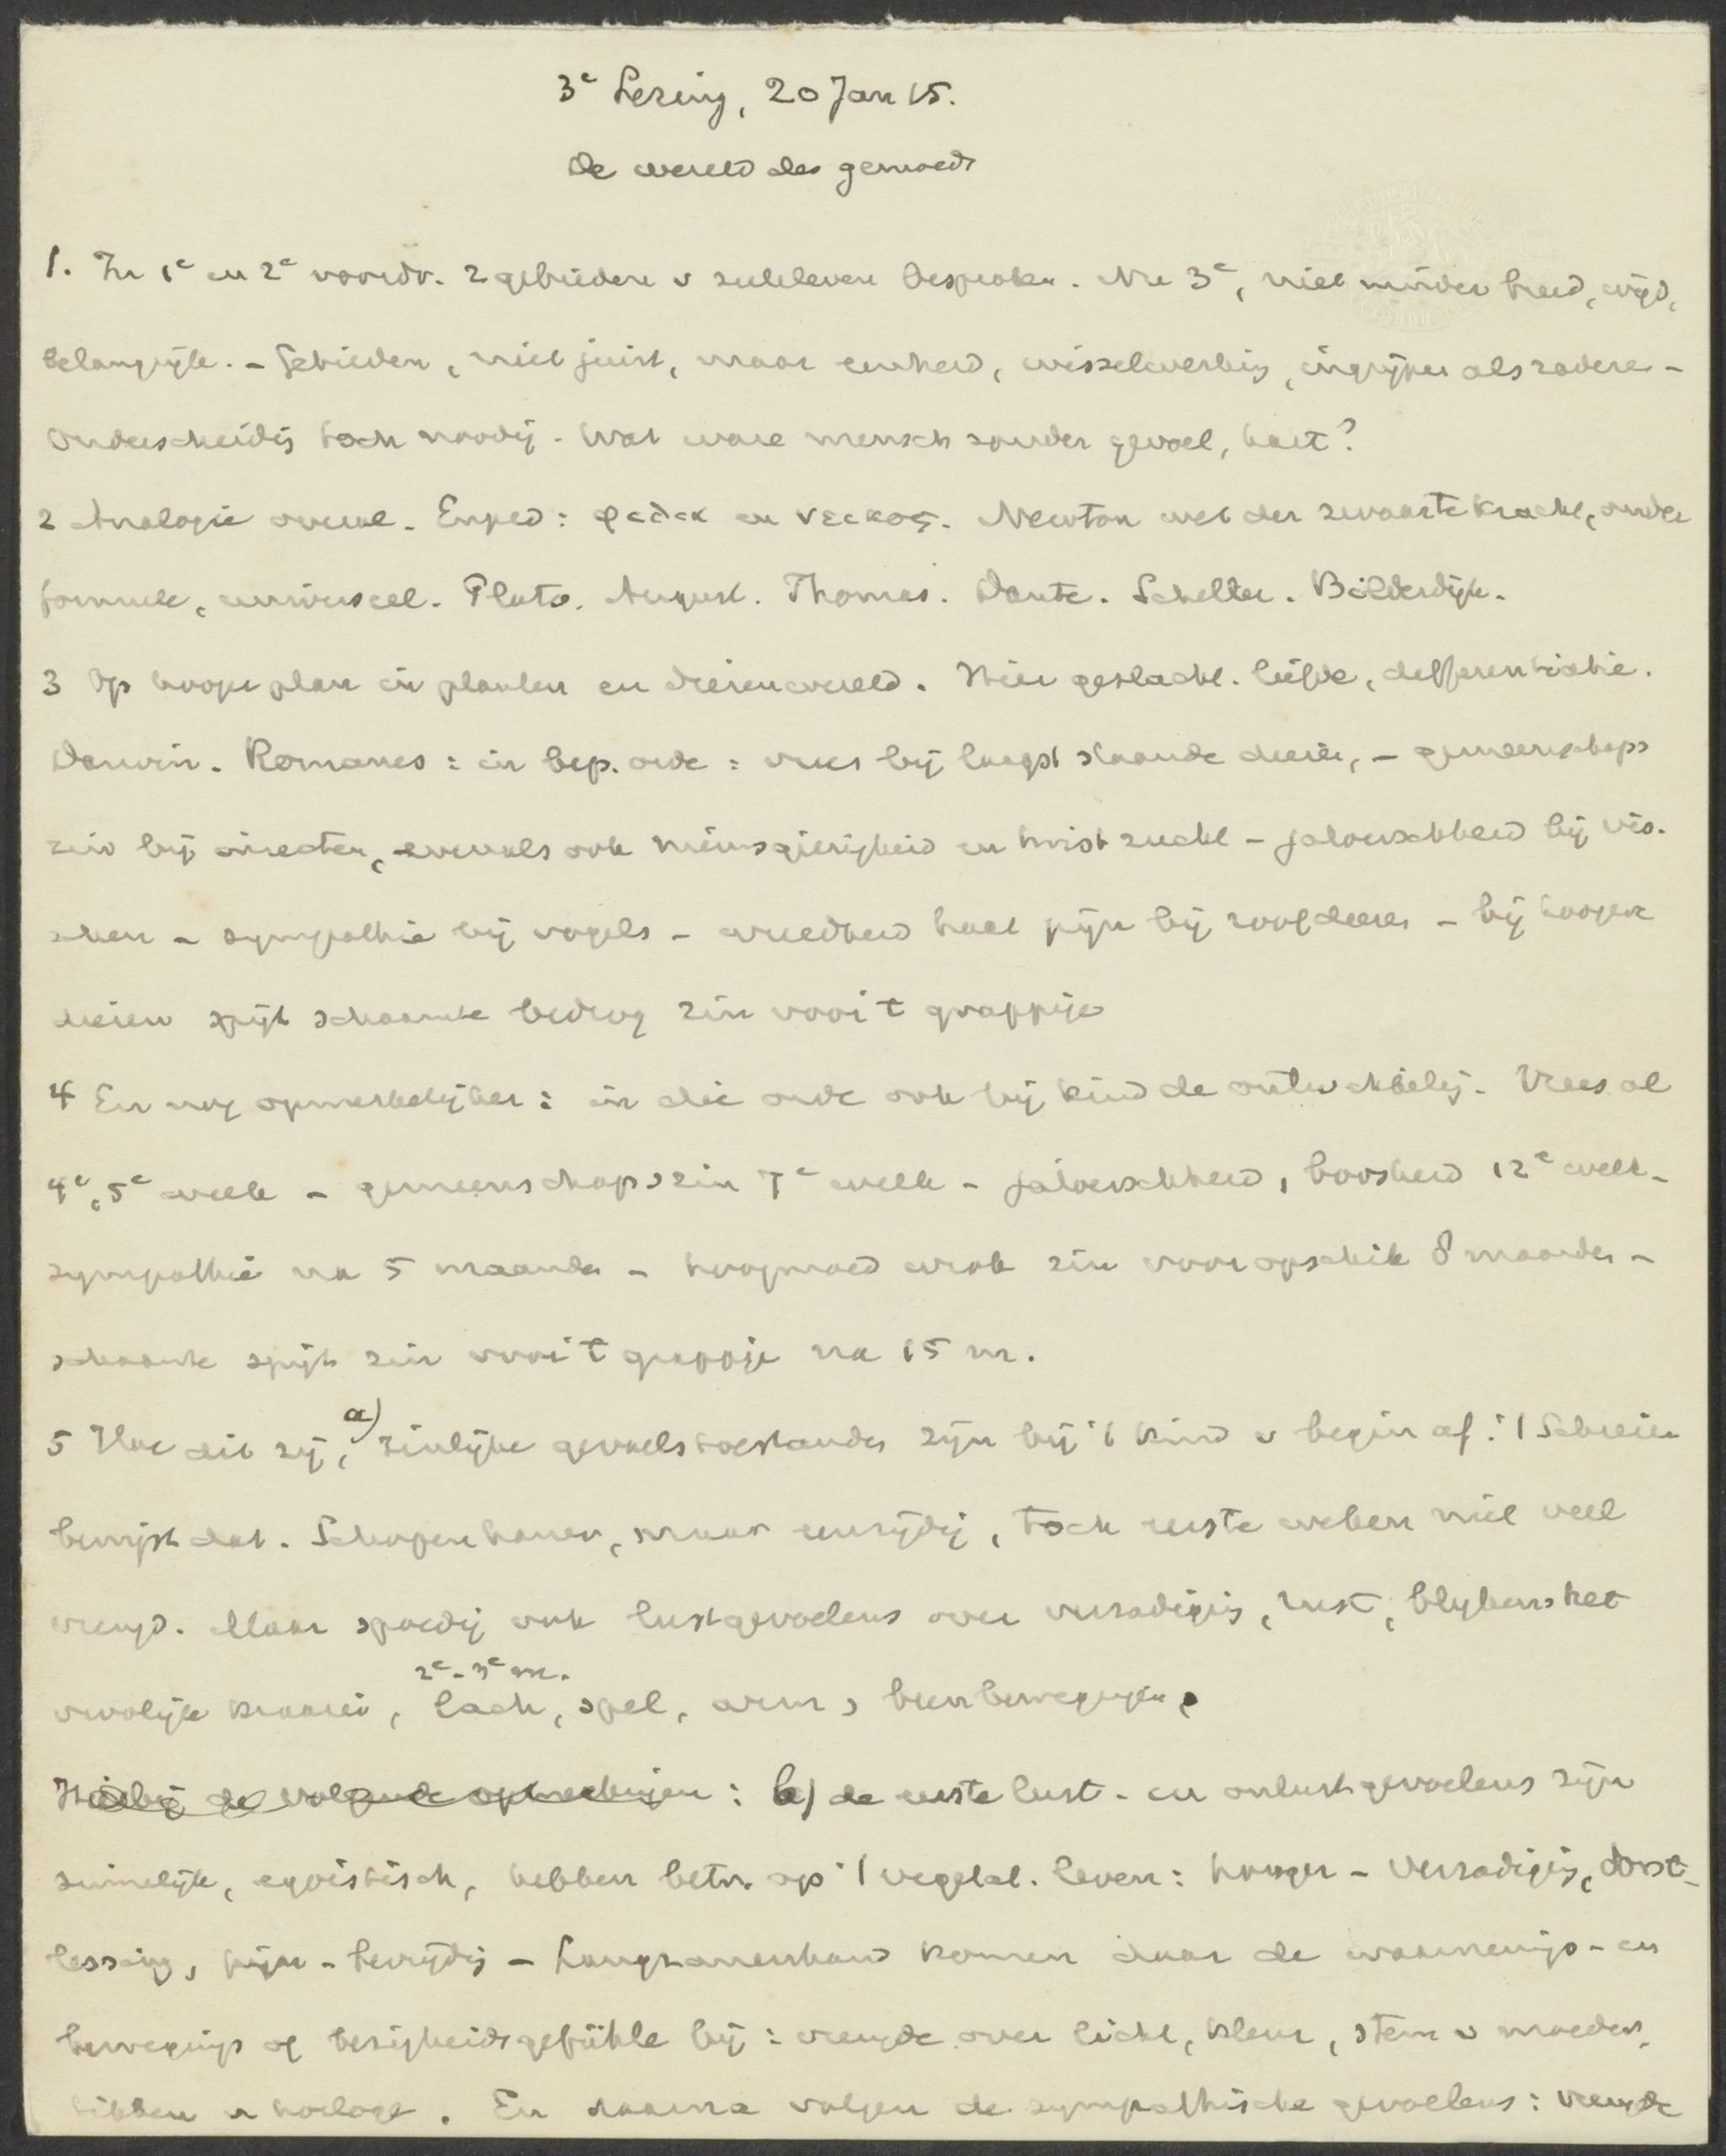 3e Lezing, 20 Jan 15.
De wereld des gemoeds
1. In 1e en 2e voordr. 2 gebieden v zieleleven besproken. Nu 3e, niet minder breed, wijd,
belangrijk. - Gebieden, niet juist, maar eenheid, wisselwerking, ingrijpen als raderen -
Onderscheidig toch noodig - Wat ware mensch zonder gevoel, hart?
2 Analogie overal. Emped: φιλια en νεικος. Newton wet der zwaartekracht, onder
formule, universeel. Plato. August. Thomas. Dante. Scheltz. Bilderdijk.
3 Op hooger plan in planten en dierenwereld. Hier geslacht. liefde, differentiatie.
Darwin. Romanes: in bep. orde: vrees bij laagst staande dieren, - gemeenschaps
zin bij insecten, evenals ook nieuwsgierigheid en twistzucht - jaloerschheid bij vis.
schen - sympathie bij vogels - wreedheid haat pijn bij roofdieren - bij hoogere
dieren spijt schaamte bedrog zin voor 't grappige
4 En nog opmerkelijker: in die orde ook bij kind de ontwikkelig. Vrees al
4e, 5e week - gemeenschapszin 7e week - jaloerschheid, boosheid 12e week -
sympathie na 5 maanden - hoogmoed wrok zin voor opschik 8 maanden -
schaamte spijt zin voor 't grappige na 15 m.
5 Hoe dit zij, a) zinlijke gevoelstoestanden zijn bij 't kind v begin af: 't Schreien
bewijst dat. Schopenhauer, maar eenzijdig, toch eerste weken niet veel
vreugd. Maar spoedig ook lustgevoelens over verzadigig, rust, blykens het
vroolijke kraaien, 2e-3e m. lach, spel, arm, beenbewegingen,
Hierbij de volgende opmerkingen: b) de eerste lust- en onlustgevoelens zijn
zinnelijk, egoistisch, hebben betr. op 't vegetat. leven: honger - verzadigig, dorst -
lessing, pijn - bevrijdig - Langzamerhand komen daar de waarnemings- en
bewegings of bezigheidsgefühle bij: vreugde over licht, kleur, stem v moeder,
tikken v horloge. En daarna volgen de sympathische gevoelens: vreugde